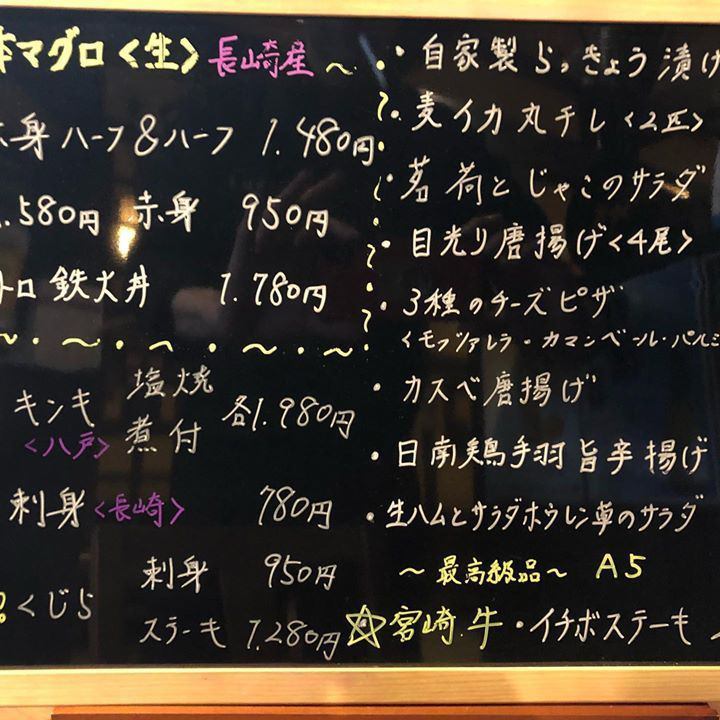 本マグロ〈生〉長崎産〜
赤身ハーフ&ハーフ 1.480円
.580円 赤身 950円
トロ 鉄火丼 1.780円
キンキ 塩焼 煮付 各1.980円
〈八戸〉
刺身〈長崎〉 780円
くじら 刺身 950円
ステーキ 1.280円
・自家製らっきょう漬け
・麦イカ丸干し〈2匹〉
・茗荷とじゃこのサラダ
・目光り唐揚げ〈4尾〉
・3種のチーズピザ
〈モッツァレラ・カマンベール・パルミ
・カスベ唐揚げ
・日南鶏手羽旨辛揚げ
・生ハムとサラダホウレン草のサラダ
〜最高級品〜 A5
☆宮崎牛・イチボステーキ